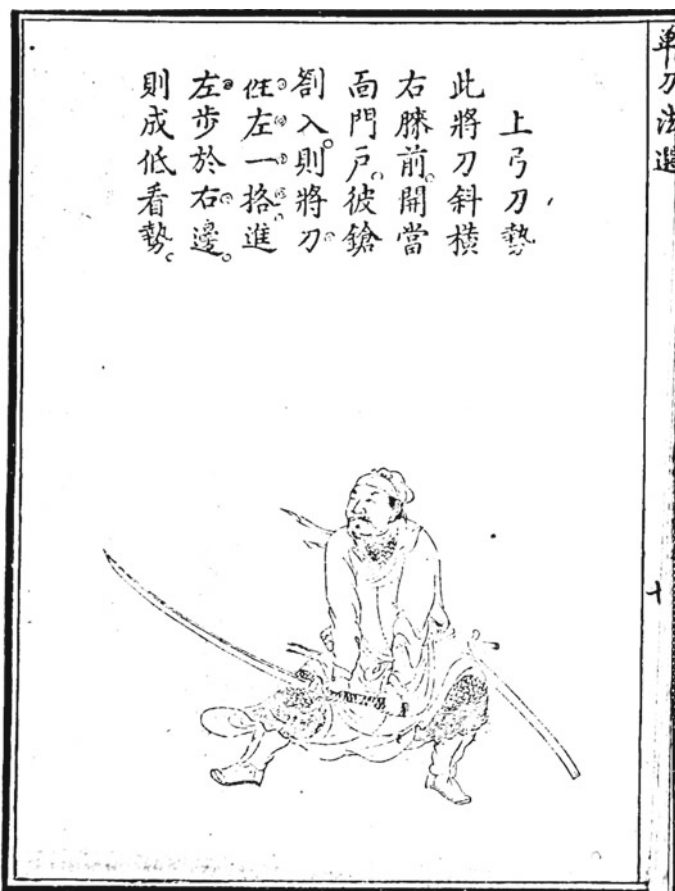 單刀法選
上弓刀勢
此將刀斜橫
右膝前。開當
面門戶。彼鎗
劄入。則將刀
徃左一挌。進
左步於右邊。
則成低看勢。
十